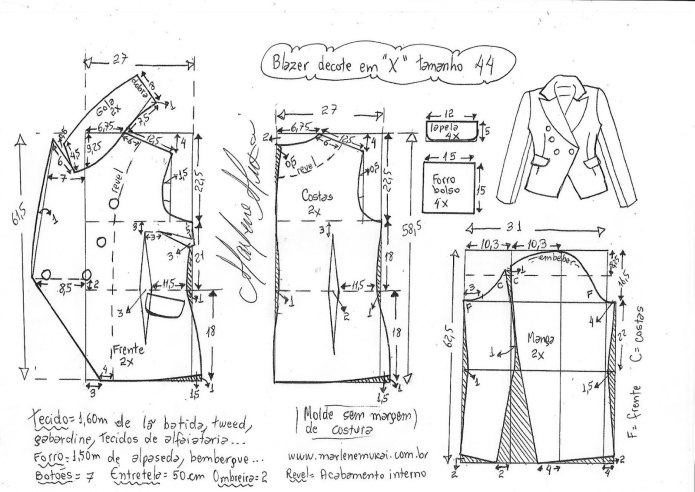 Blazer decote em "X" tamanho 44
27
Gola
2x
dobra
8
1
7,5
6,75
12,5
6
4
9,25
4,5
6
7
revel
1,5
22,5
61,5
1
9
3
3
21
8,5
2
11,5
1
3
18
Frente
2x
4
3
1,5
27
2
6,75
12,5
6
4
0,5
revel
0,5
22,5
Costas
2x
58,5
3
3
18
11,5
1
2
1
18
1,5
Marlene Mukai
12
lapela
4x
5
15
Forro
bolso
4x
15
31
10,3
10,3
embeber
1
C
C
3
F
F
4
62,5
Manga
2x
22
1
1
1,5
2
2
4
4
2
F = frente C = costas
Tecido = 1,60m de lã batida, tweed,
gabardine, tecidos de alfaiataria...
Forro = 1,50m de alpaseda, bembergue...
Botões = 7 Entretela = 50 cm Ombreira = 2
(Molde sem margem)
de costura
www.marlenemukai.com.br
Revel = Acabamento interno